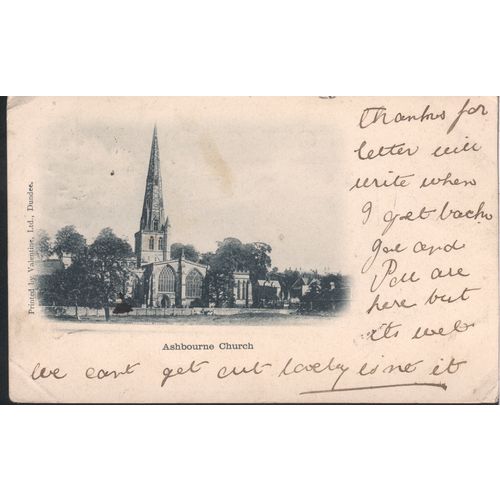 Thanks for
letter will
write when
I get back
Gee and
Pa are
here but
its wet
we cant get out lovely is ne it
Ashbourne Church
Printed by Valentine, Ltd., Dundee.